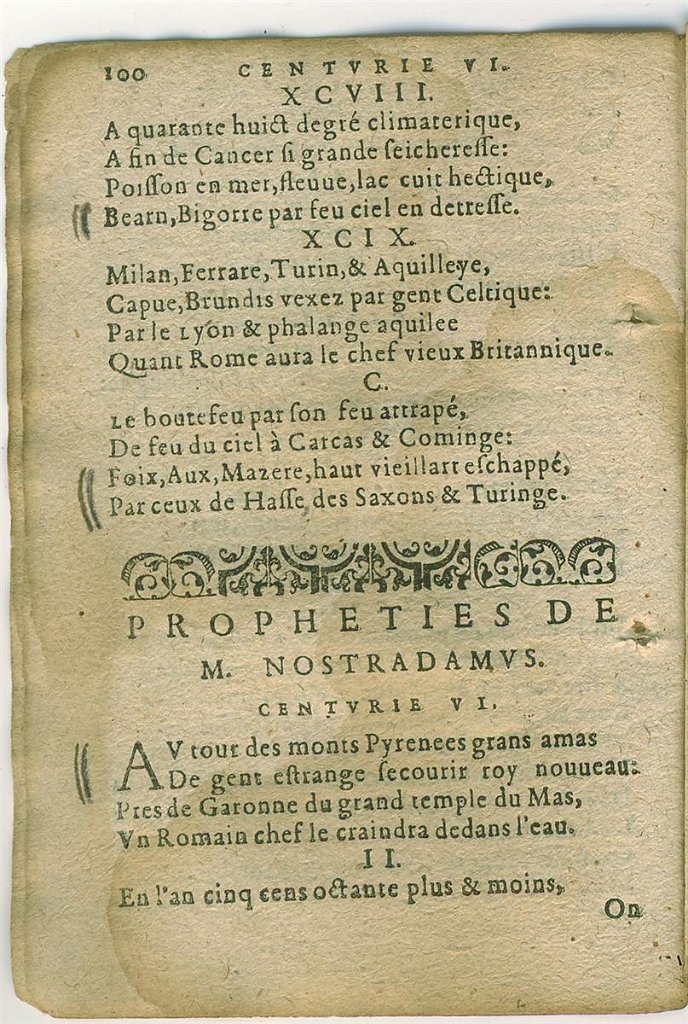 100 CENTVRIE VI.
XCVIII.
A quarante huict degré climaterique,
A fin de Cancer ſi grande ſeichereſſe:
Poiſſon en mer, fleuue, lac cuit hectique,
Bearn, Bigorre par feu ciel en detreſſe.
XCIX.
Milan, Ferrare, Turin, & Aquilleye,
Capue, Brundis vexez par gent Celtique:
Par le Lyon & phalange aquilee
Quant Rome aura le chef vieux Britannique.
C.
Le boutefeu par ſon feu attrapé,
De feu du ciel à Carcas & Cominge:
Foix, Aux, Mazere, haut vieillart eſchappé,
Par ceux de Haſſe, des Saxons & Turinge.
PROPHETIES DE
M. NOSTRADAMVS.
CENTVRIE VI.
AV tour des monts Pyrenees grans amas
De gent eſtrange ſecourir roy nouueau:
Pres de Garonne du grand temple du Mas,
Vn Romain chef le craindra dedans l'eau.
II.
En l'an cinq cens octante plus & moins,
On